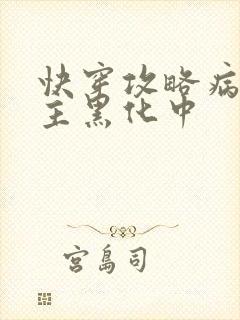 快穿攻略病
主黑化中
宫岛司